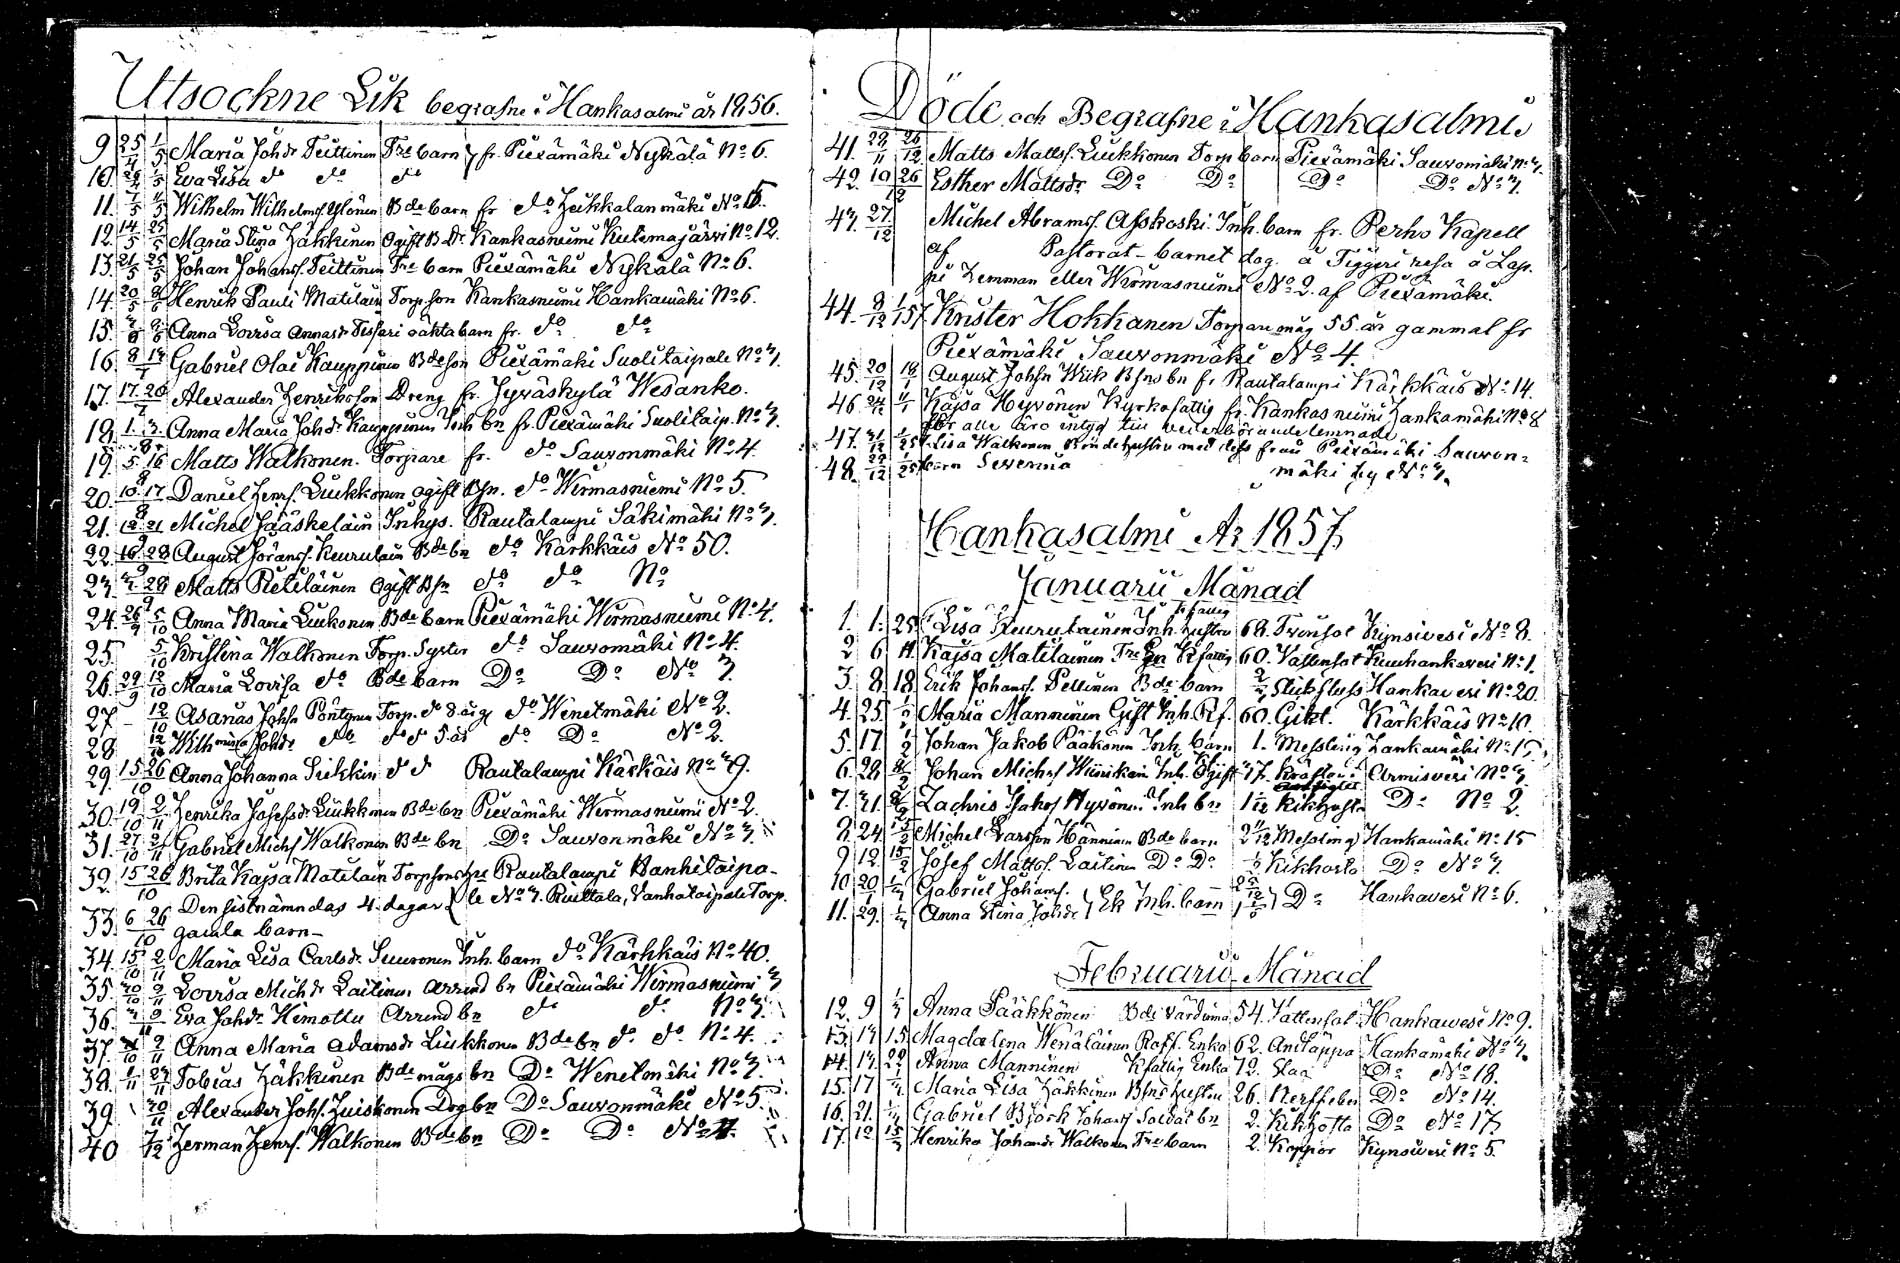 Utsockne Lik begrafne i Hankasalmi år 1856.
9 25/4 1/5 Maria Johdr Teittinen Tre barn fr. Piexämäki Nykälä No 6.
10. 26/4 1/5 Eva Lisa do do do
11. 7/5 Wilhelm Wilhelmss. Ylönen Bde barn fr do Heikkalanmäki No
12. 14/5 25/5 Maria Stina Häkkinen Ogift B.Dr. Kankasniemi Kutemajärvi No 12.
13. 21/5 25/5 Johan Johanss. Teittinen Tre barn Piexämäki Nykälä No 6.
14. 20/5 8/6 Henrik Pauli Matilain Torp.son Kankasniemi Hankamäki No 6.
15. Anna Lovisa Annasdr oäkta barn fr. do do
16. 8/7 Gabriel Olai Kauppinen Bdeson Piexämäki Suolitaipale No 3.
17. 17 20/7 Alexander Henriksson Dreng fr. Jyväskylä Wesanko.
18. 1 3/8 Anna Maria Johdr Kauppinen Inh bn fr. Piexämäki Suolitaip. No 3.
19. 5 16/8 Matts Walkonen. Torpare fr. do Sauvonmäki No 4.
20. 10 17/8 Daniel Henrs. Liukkonen ogift Bsn. do Wirmasniemi No 5.
21. 12 21/9 Michel Jääskeläin Inhys. Rautalampi Säkimäki No 3.
22. 16 28/9 August Göranss. Keurulain Bde bn do Kärkkäis No 50.
23. 28/9 Matts Pietiläinen ogift Bsn do do No
24. 26/9 5/10 Anna Maria Liukkonen Bde barn Piexämäki Wirmasniemi No 4.
25. 5/10 Kristina Walkonen Torp. Syster do Sauvomäki No 4.
26. 29/9 12/10 Maria Lovisa do Bde barn Do Do No 3.
27 - 12/10 Asarias Johsn Pöntynen Torp. do 8 årig do Wenetmäki No 2.
28 12/10 Wilhmina Johdr do do do 5 år do Do No 2.
29. 15 26/10 Anna Johanna Sikkin d d Rautalampi Kärkäis No 39.
30. 19/10 2/11 Henrika Josefsdr Liukkonen Bde bn Piexämäki Wirmasniemi No 2.
31. 27/10 2/11 Gabriel Michss Walkonen Bde bn Do Sauvonmäki No 3.
32. 15 26/10 Brita Kajsa Matilain Torpsons hu Rautalampi Vanhitaipa-
33. 6 26/10 Den sistnämndas 4. dagar le No 3. Riuttala, Vanhataipale Torp.
gamla barn-
34. 15/10 2/11 Maria Lisa Carlsdr. Siuvonen Inh. barn do Kärkkäis No 40.
35. 30/10 9/11 Lovisa Michdr Laitinen Arrend bn Piexämäki Wirmasniemi 3
36. 9/11 Eva Johdr Himottu Arrend bn do do No 3.
37. /10 2/11 Anna Maria Adamsdr Liukkonen Bde bn do do No 4.
38. /11 23/11 Tobias Häkkinen Bde mågs bn Do Wenetmäki No 3.
39. 30/11 Alexander Johs. Huiskonen Drg bn Do Sauvonmäki No 5.
40 7/12 Herman Henrs. Walkonen Bde bn Do Do No 4.
Döde och Begrafne i Hankasalmi
41. 29/11 26/12 Matts Mattss. Liukkonen Torp barn Piexämäki Sauvomäki No 3.
42. 10 26/12 Esther Mattsdr Do Do Do Do No 3.
43 27/12 Michel Abramss. Inh. barn fr. Perho Kapell
af Pastorat - barnet dog. å Tiggeri resa å Lap-
pi Hemman eller Wirmasniemi No 2. af Piexämäki.
44. 8/12 1/1 57. Krister Hokkanen Torpare måg 55 år gammal fr
Piexämäki Sauvonmäki No 4.
45. 20/12 18/1 August Johsn Wiik Bsns bn fr Rautalampi Kärkkäis No 14.
46 24/12 /1 Kajsa Hyvönen Kyrkofattig fr. Kankasniemi Hankamäki No 8
för alla äro intyg till vederbörande lemnade
47. 31/12 /1 Lisa Walkonen Bondehustru med dess från Piexämäki Sauvon-
48. 29/12 25/1 barn Severina mäki by No 3.
Hankasalmi År 1857.
Januarii Månad
1. 1. 25. Lisa Keurulainen Inh. hustru K fattig 68. Trånsot Kynsivesi No 8.
2 6 11. Kajsa Matilainen Tre K fattig 60. Vattensot Kuuhankavesi No 1.
3. 8. 18. Erik Johanss. Pellinen Bde barn Stickfluss Hankavesi No 20.
4. 25. 1/2 Maria Manninen Gift Inh. 60. Gikt. Kärkkäis No 10.
5. 17. 1/2 Johan Jakob Pääkönen Inh. barn 1. Messling Hankamäki No 15.
6. 28. 8/2 Johan Michss Wiinikain Inh. Ogift 37. Armisveri No 3.
7. 31. 8/2 Zachris Jakss Hyvönen Inh bn 1 1/12 Kikhosta Do No 2.
8. 24. 15/2 Michel Larsson Hänninen Bde barn 2 11/12 Messling Hankamäki No 15
9. 12. 15/2 Josef Mattss. Laitinen Do Do Kikhosta Do No 3.
10. 20. 1/3 Gabriel Johanss. Ek Inh. barn Do Hankavesi No 6.
11. 29. 1/3 Anna Stina Johdr
Februarii Månad
12. 9 1/3 Anna Pääkkönen Bde värdinna 54. Vattensot Hankavesi No 9.
13. 13 15. Magdalena Wenäläinen Rotf. Enka 62. Andtäppa Hankamäki No 3.
14. 13. 22 Anna Manninen K fattig Enka 72. Slag Do No 18.
15. 17 Maria Lisa Häkkinen Bsns hustru 26. Nerffeber Do No 14.
16. 21. Gabriel Björk Johanss Soldat bn 2. Kikhosta Do No 17.
17. 12 15/3 Henrika Johansdr Walkonen Tre barn 2. Koppor Kynsivesi No 5.